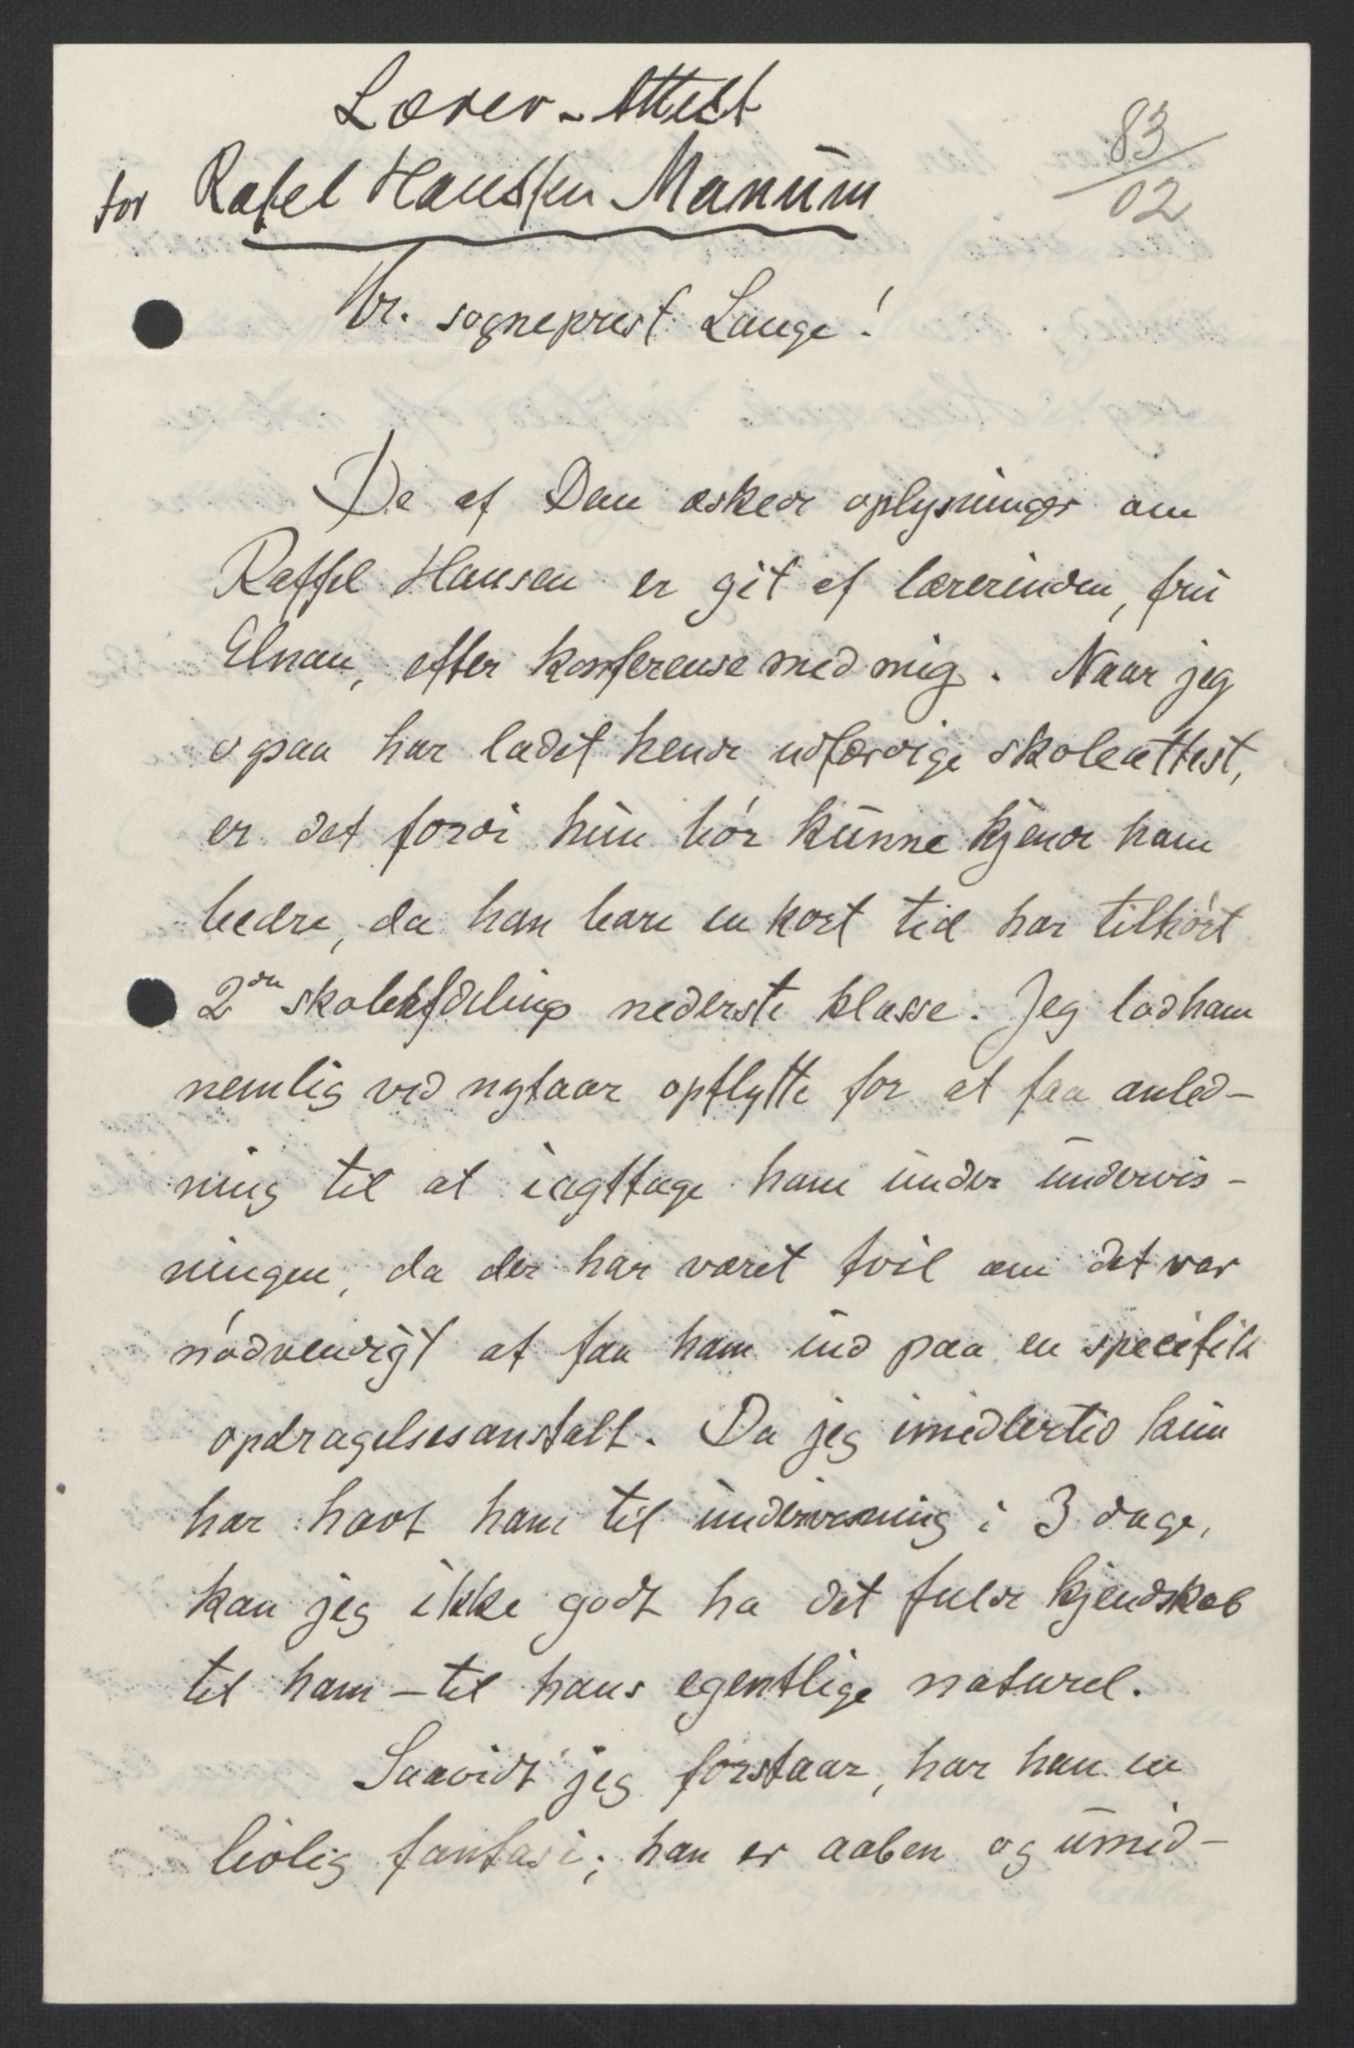 Lærer-Attest
83/02
for Rafel Hanssen Manum
Hr. sogneprest Lange!
De af Dem æskede oplysninger om
Raffel Hansen er git af lærerinden, fru
Elnan, efter konferense med mig. Naar jeg
ogsaa har ladet hende udfærdige skoleattest,
er det fordi hun bör kunne kjende ham
bedre, da han bare en kort tid har tilhört
2den skoleafdelings nederste klasse. Jeg lod ham
nemlig ved nytaar opflytte for at faa anled-
ning til at iagttage ham under undervis-
ningen, da der har været tvil om det var
nödvendigt at faa ham ind paa en specifik
opdragelsesanstalt. Da jeg imidlertid kun
har havt ham til undervisning i 3 dage,
kan jeg ikke godt ha det fulde kjendskab
til ham – til hans egentlige naturel.
Saavidt jeg forstaar, har han en
livlig fantasi; han er aaben og umid-